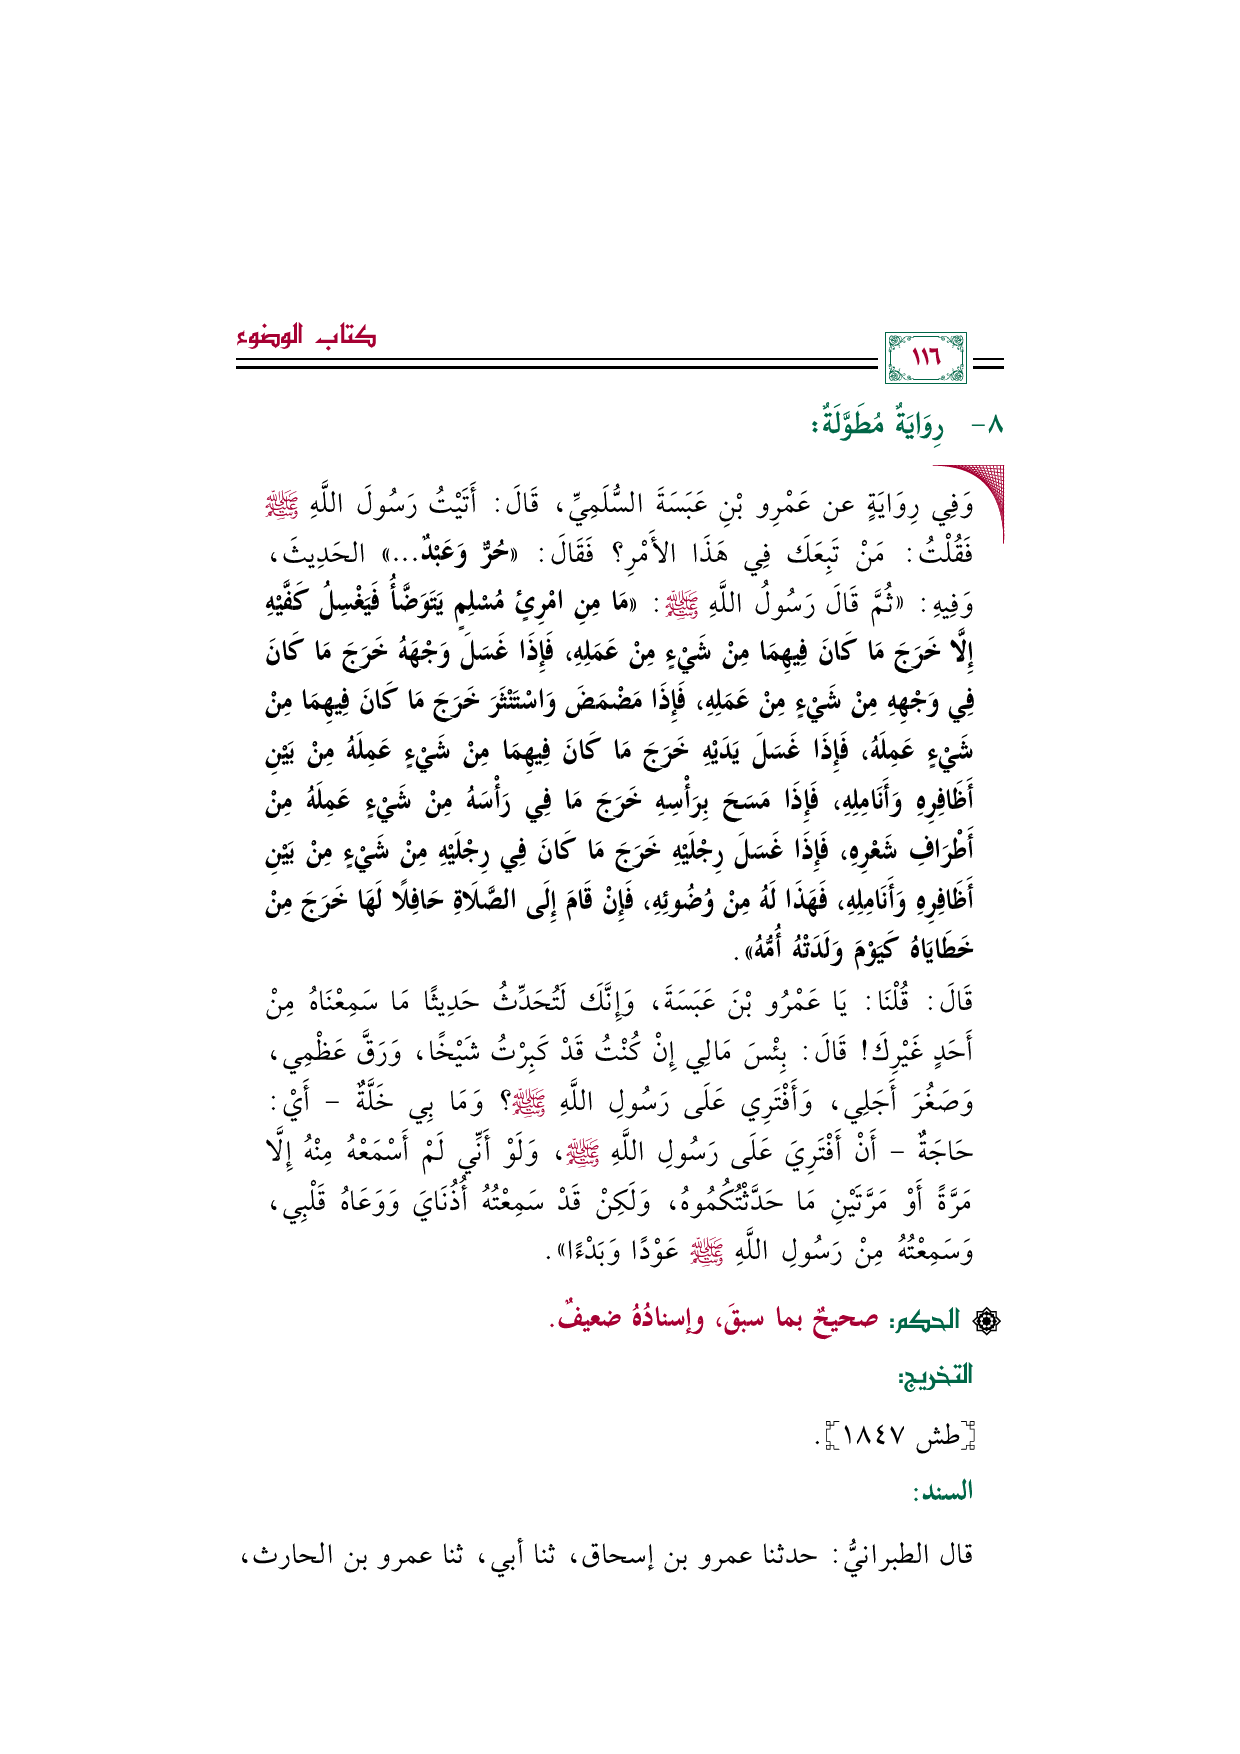 كتاب الوضوء
١١٦
٨- رِوَايَةٌ مُطَوَّلَةٌ:
وَفِي رِوَايَةٍ عن عَمْرِو بْنِ عَبَسَةَ السُّلَمِيِّ، قَالَ: أَتَيْتُ رَسُولَ اللَّهِ ﷺ
فَقُلْتُ: مَنْ تَبِعَكَ فِي هَذَا الأَمْرِ؟ فَقَالَ: «حُرٌّ وَعَبْدٌ...» الحَدِيثَ،
وَفِيهِ: «ثُمَّ قَالَ رَسُولُ اللَّهِ ﷺ: «مَا مِنِ امْرِئٍ مُسْلِمٍ يَتَوَضَّأُ فَيَغْسِلُ كَفَّيْهِ
إِلَّا خَرَجَ مَا كَانَ فِيهِمَا مِنْ شَيْءٍ مِنْ عَمَلِهِ، فَإِذَا غَسَلَ وَجْهَهُ خَرَجَ مَا كَانَ
فِي وَجْهِهِ مِنْ شَيْءٍ مِنْ عَمَلِهِ، فَإِذَا مَضْمَضَ وَاسْتَنْثَرَ خَرَجَ مَا كَانَ فِيهِمَا مِنْ
شَيْءٍ عَمِلَهُ، فَإِذَا غَسَلَ يَدَيْهِ خَرَجَ مَا كَانَ فِيهِمَا مِنْ شَيْءٍ عَمِلَهُ مِنْ بَيْنِ
أَظَافِرِهِ وَأَنَامِلِهِ، فَإِذَا مَسَحَ بِرَأْسِهِ خَرَجَ مَا فِي رَأْسَهُ مِنْ شَيْءٍ عَمِلَهُ مِنْ
أَطْرَافِ شَعْرِهِ، فَإِذَا غَسَلَ رِجْلَيْهِ خَرَجَ مَا كَانَ فِي رِجْلَيْهِ مِنْ شَيْءٍ مِنْ بَيْنِ
أَظَافِرِهِ وَأَنَامِلِهِ، فَهَذَا لَهُ مِنْ وُضُوئِهِ، فَإِنْ قَامَ إِلَى الصَّلَاةِ حَافِلًا لَهَا خَرَجَ مِنْ
خَطَايَاهُ كَيَوْمَ وَلَدَتْهُ أُمُّهُ».
قَالَ: قُلْنَا: يَا عَمْرُو بْنَ عَبَسَةَ، وَإِنَّكَ لَتُحَدِّثُ حَدِيثًا مَا سَمِعْنَاهُ مِنْ
أَحَدٍ غَيْرِكَ! قَالَ: بِئْسَ مَالِي إِنْ كُنْتُ قَدْ كَبِرْتُ شَيْخًا، وَرَقَّ عَظْمِي،
وَصَغُرَ أَجَلِي، وَأَفْتَرِي عَلَى رَسُولِ اللَّهِ ﷺ؟ وَمَا بِي خَلَّةٌ – أَيْ:
حَاجَةٌ – أَنْ أَفْتَرِيَ عَلَى رَسُولِ اللَّهِ ﷺ، وَلَوْ أَنِّي لَمْ أَسْمَعْهُ مِنْهُ إِلَّا
مَرَّةً أَوْ مَرَّتَيْنِ مَا حَدَّثْتُكُمُوهُ، وَلَكِنْ قَدْ سَمِعْتُهُ أُذُنَايَ وَوَعَاهُ قَلْبِي،
وَسَمِعْتُهُ مِنْ رَسُولِ اللَّهِ ﷺ عَوْدًا وَبَدْءًا».
الحكم: صحيحٌ بما سبقَ، وإسنادُهُ ضعيفٌ.
التخريج:
[طش ١٨٤٧].
السند:
قال الطبرانيُّ: حدثنا عمرو بن إسحاق، ثنا أبي، ثنا عمرو بن الحارث،